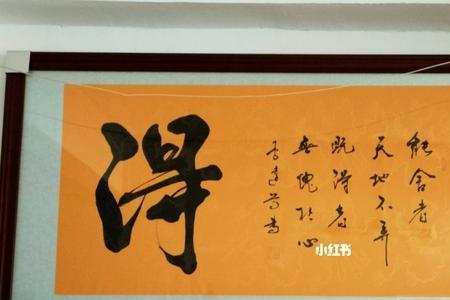 能舍者
天地不弃
既得者
无愧于心
得
小红书